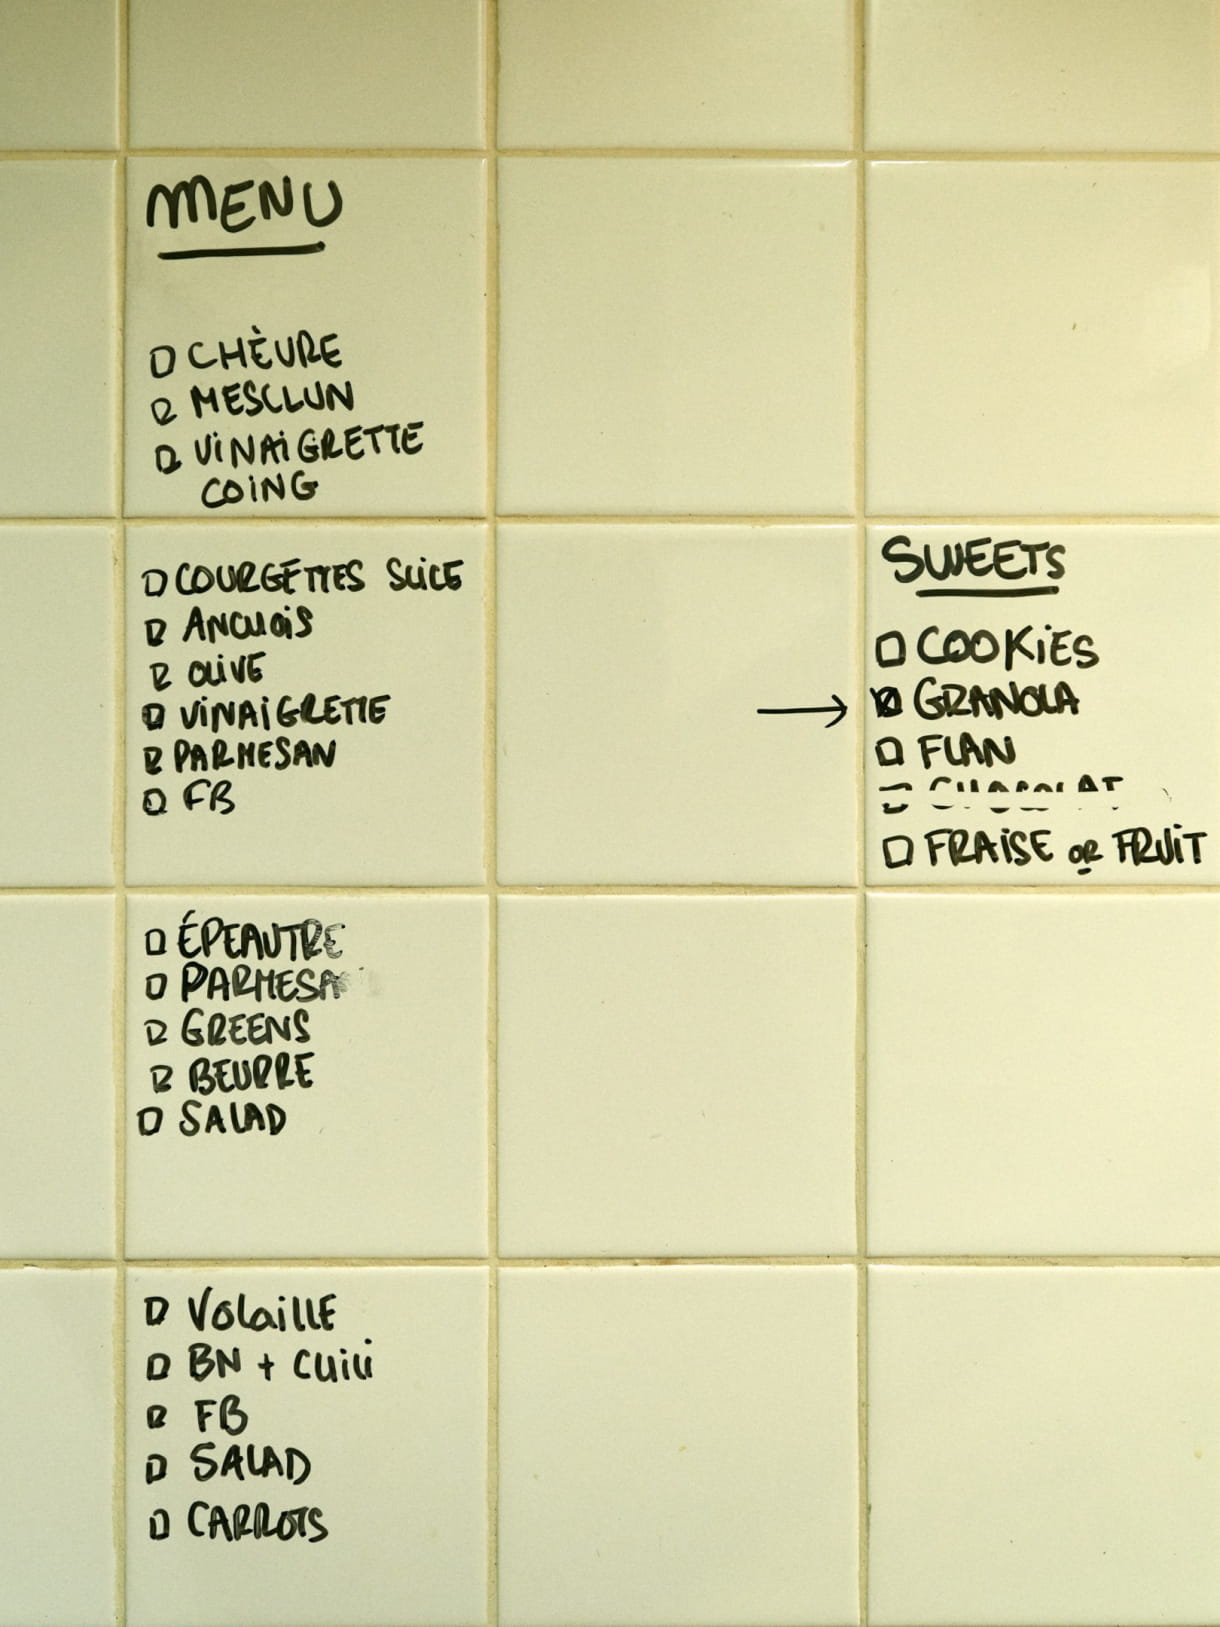 MENU
CHÈVRE
MESCLUN
VINAIGRETTE
COING
COURGETTES SLICE
ANCHOIS
OLIVE
VINAIGRETTE
PARMESAN
FB
ÉPEAUTRE
PARMESAN
GREENS
BEURRE
SALAD
VOLAILLE
BN +
FB
SALAD
CARROTS
SWEETS
COOKIES
GRANOLA
FLAN
CHOCOLAT
FRAISE OR FRUIT